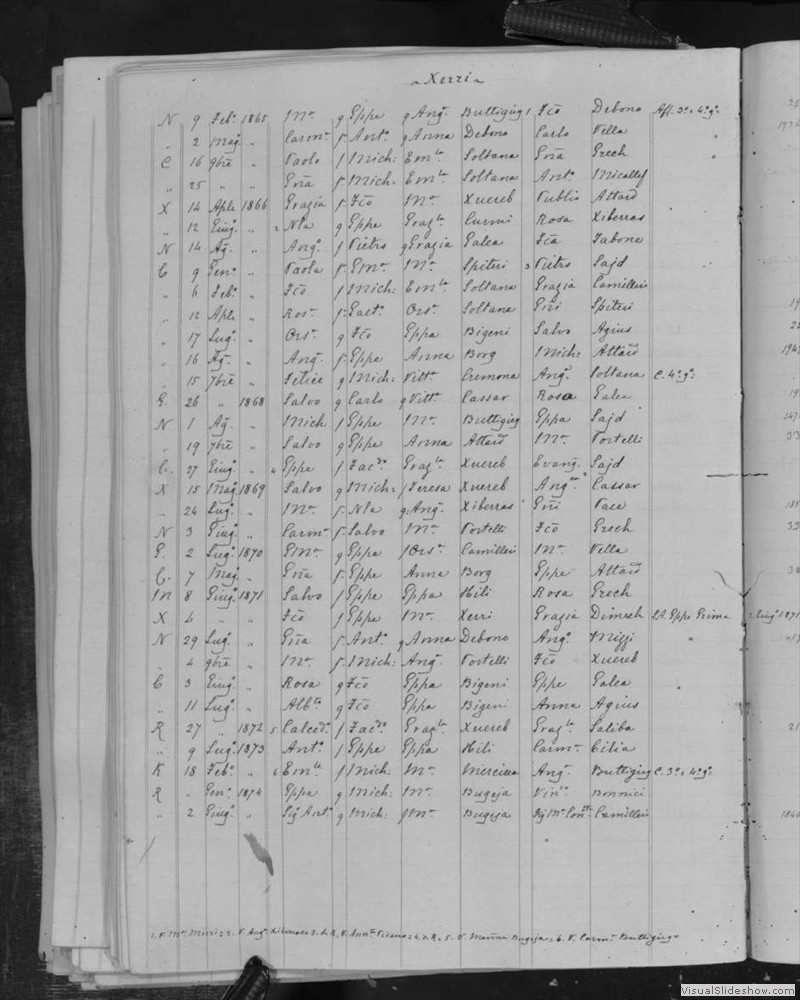 ~ Xerri ~
N 9 Feb.º 1865 Mª g Eppe g Ang.ª Buttigieg 1 Fcõ Debono Aff. 3º e 4º gº
„ 2 Mag. „ Carmª f Antº g Anna Debono Carlo Vella
C 16 9bre „ Paolo f Mich: Emla Soltana Gña Grech
„ 25 „ „ Gña f Mich: Emla Soltana Antº Micallef
X 14 Aple 1866 Grazia f Fcõ Mª Xuereb Publio Attard
„ 12 Giugº „ 2 Nla g Eppe Grazla Curmi Rosa Xiberras
N 14 Agº „ Angº f Pietro g Grazia Galea Fca Tabone
C 9 Genº „ Paola f Gmª Mª Spiteri 3 Pietro Sajd
„ 6 Febº „ Fcõ f Mich: Emla Soltana Grazia Camilleri
„ 12 Aple „ Rosª f Gaetº Orsª Soltana Gñi Spiteri
„ 17 Lugº „ Orsª g Fcõ Eppa Bigeni Salvo Agius
„ 16 Agº „ Angª f Eppe Anna Borg Mich: Attard
„ 15 7bre „ Felice g Mich: Vittª Cremona Angª Soltana C. 4º gº
G. 26 „ 1868 Salvo g Carlo g Vittª Cassar Rosa Galea
N 1 Agº „ Mich f Eppe Mª Buttigieg Eppa Sajd
„ 19 7bre „ Salvo g Eppe Anna Attard Mª Portelli
C. 27 Giugº „ 4 Eppe f Facdo Grazla Xuereb Evangª Sajd
X 15 Mag. 1869 Salvo g Mich: f Teresa Xuereb Angla Cassar
„ 24 Lugº „ Mª f Nla g Angª Xiberras Gñi Pace
N 3 Giugº „ Carmª f Salvo Mª Portelli Fcõ Grech
G. 2 Lugº 1870 Gmª g Eppe f Orsª Camilleri Mª Vella
C. 7 Magº „ Gña f Eppe Anna Borg Eppe Attard
M 8 Giugº 1871 Salvo f Eppe Eppa Hili Rosa Grech
X 4 „ „ Fcõ f Eppe Mª Xerri Grazia Dimech Eppe Grima Giugº 1871
N 29 Lugº „ Gña f Antº g Anna Debono Angº Mizzi
„ 4 9bre „ Mª f Mich: Angª Portelli Fcõ Xuereb
C 3 Giugº „ Rosa g Fcõ Eppa Bigeni Eppe Galea
„ 11 Lugº „ Albto g Fcõ Eppa Bigeni Anna Agius
R 27 „ 1872 5 Calcedº f Facdo Grazla Xuereb Grazla Saliba
„ 9 Lugº 1873 Antº f Eppe Eppa Hili Carmª Cilia
K 18 Febº „ 6 Emle f Mich: Mª Mercieca Angª Buttigieg C. 3º e 4º gº
R „ Genº 1874 Eppa g Mich: Mª Bugeja Vinº Bonnici
„ 2 Giugº „ Sig Antº g Mich: f Mª Bugeja Sig Mª Conta Camilleri
1. V. Mª 2. V. Angª Xiberras 3. V. 4. 5. V. Bugeja 6. V. Carmª Buttigieg
VisualSlideshow.com